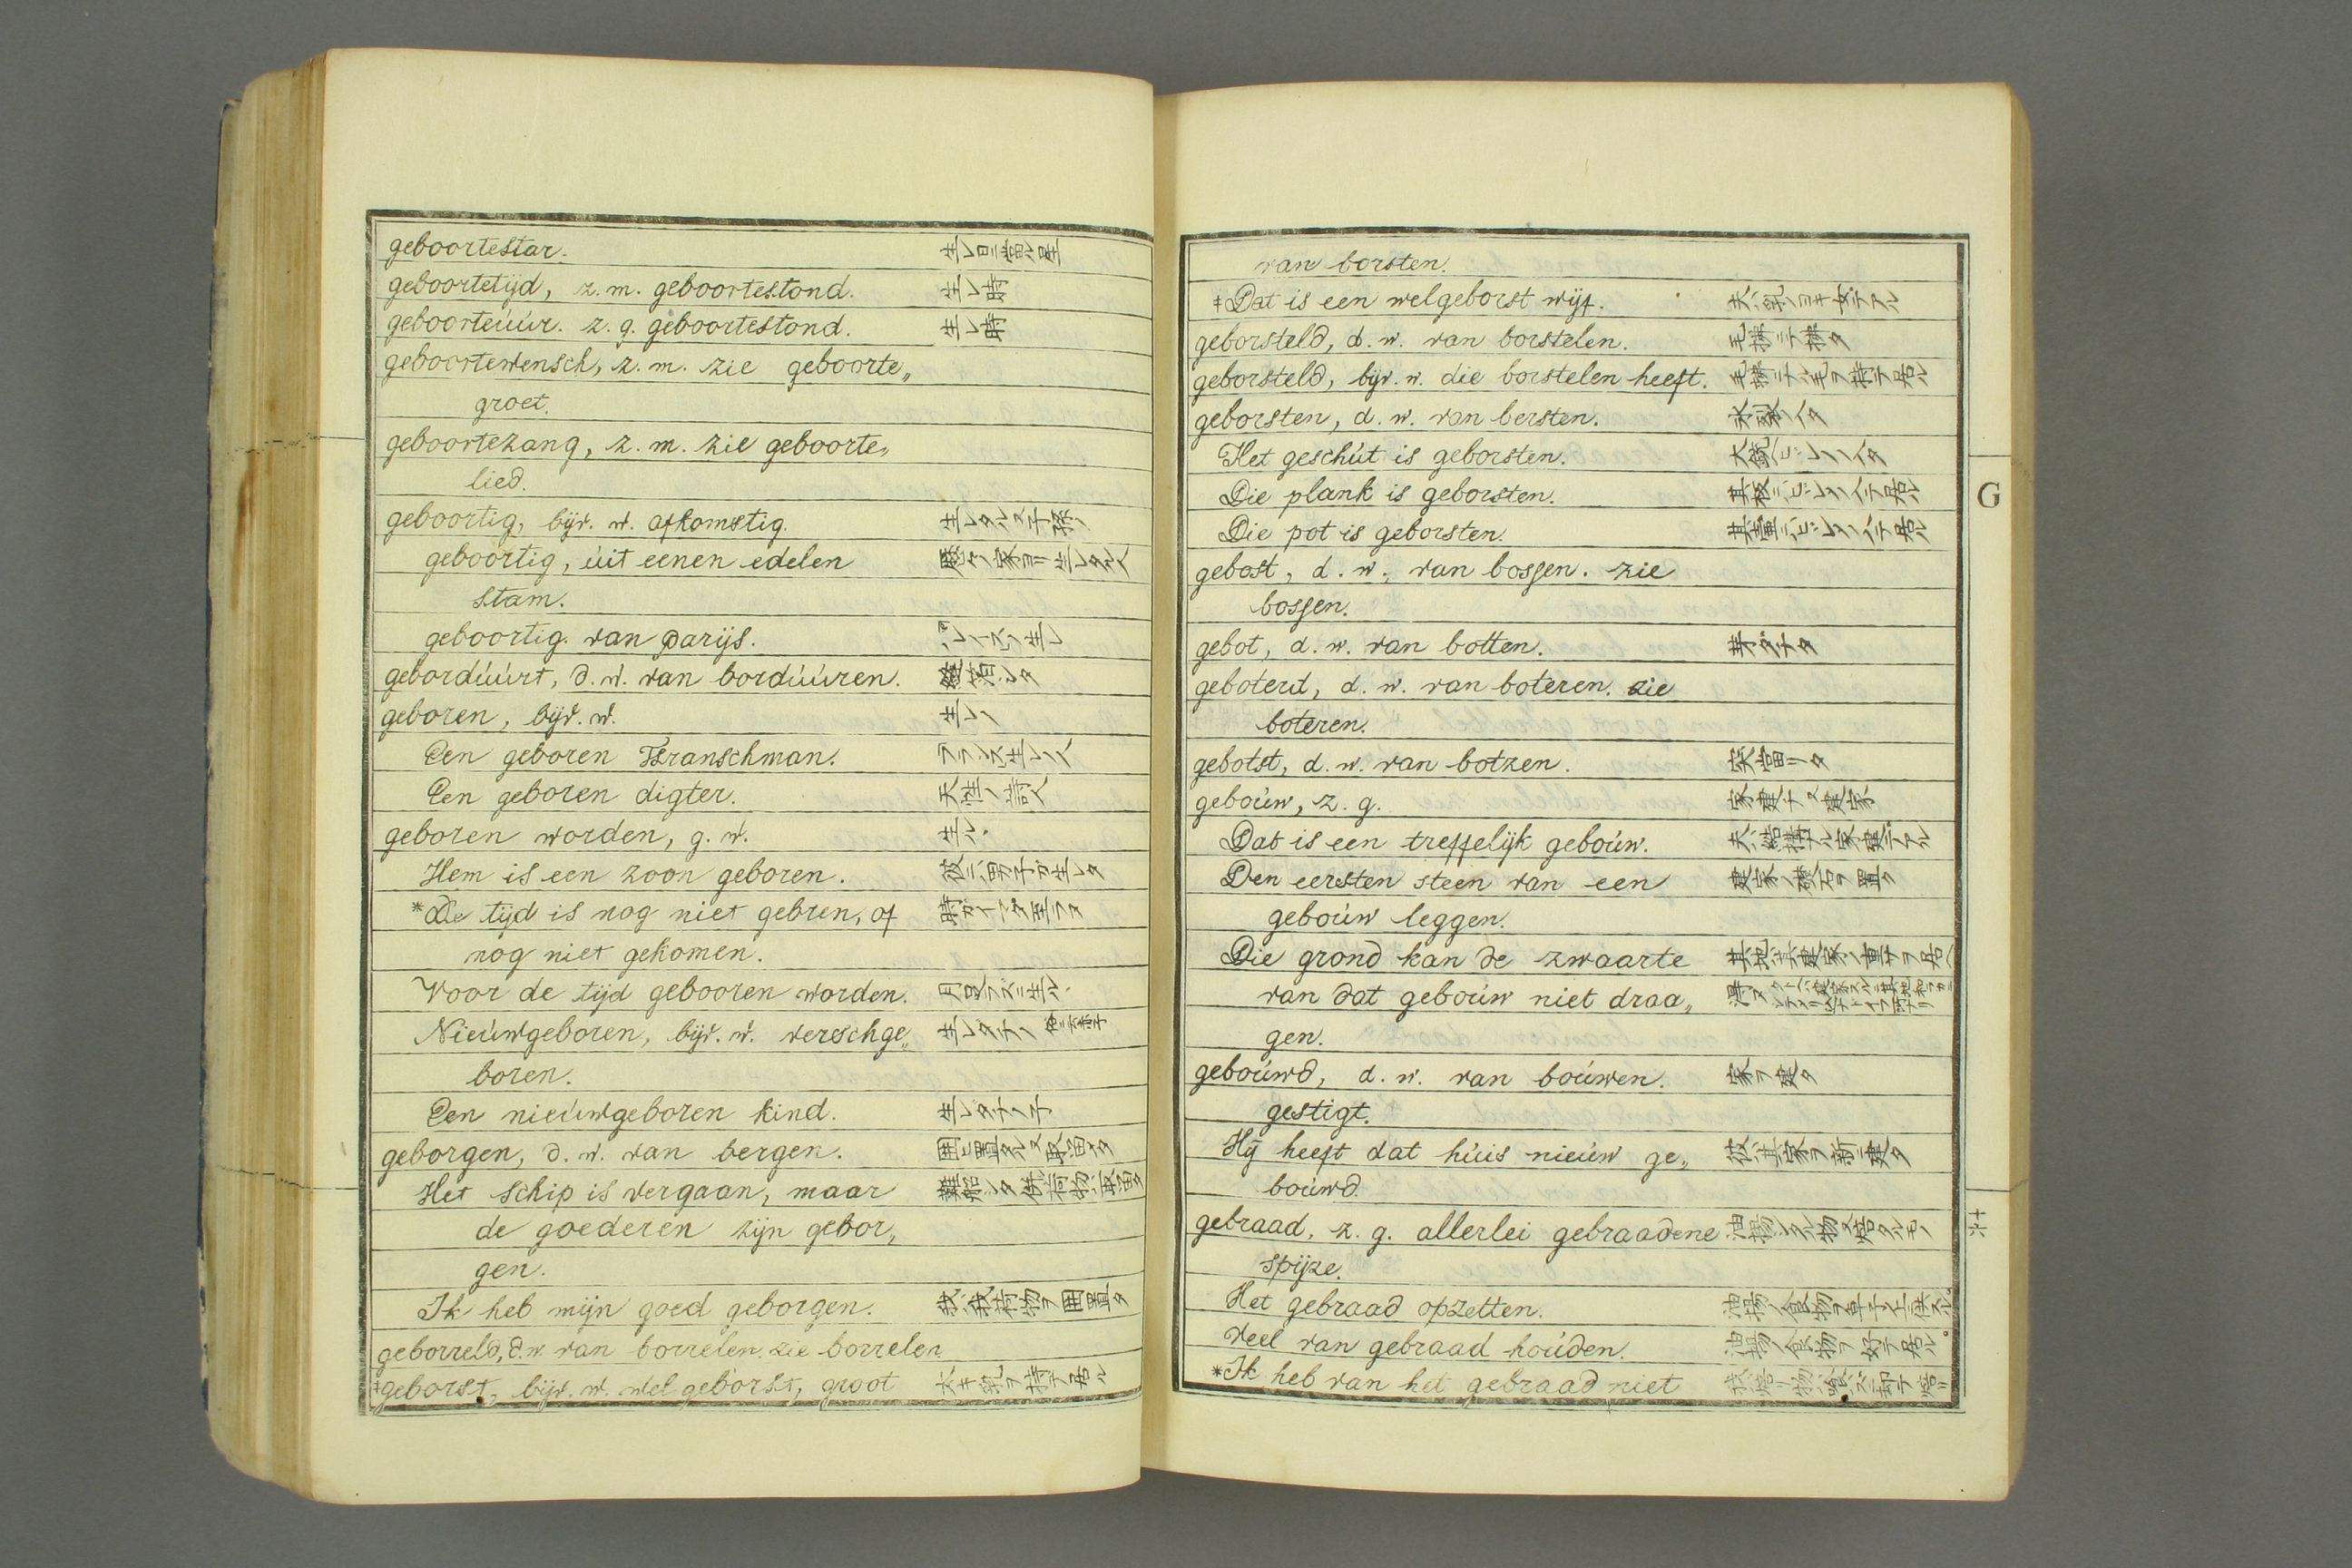 geboortestar. 生レ日ニ當ル星
geboortetijd, z. m. geboortestond. 生レ時
geboorteúúr. z. g. geboortestond. 生レ時
geboortewensch, z. m. zie geboorte„
groet.
geboortezang, z. m. zie geboorte„
lied.
geboortig, bijv. w. afkomstig. 生レタル又子孫ノ
geboortig, úit eenen edelen 家ヨリ生レタル人
stam.
geboortig. van parijs.
gebordúúrt, d. w. van bordúúren.
geboren, bijv. w. 生レノ
Een geboren Franschman. フランス生レノ人
Een geboren digter. 天性ノ詩人
geboren worden, g. w. 生ル丶
Hem is een zoon geboren. 彼ニ男子ガ生レタ
*De tijd is nog niet gebren, of 時ガイマダ至ラヌ
nog niet gekomen.
Voor de tijd gebooren worden. 月足ラズニ生ル丶
Nieúwgeboren, bijv. w. verschge„ 生レタテノ
boren.
Een nieúwgeboren kind. 生レタテノ子
geborgen, d. w. van bergen. 囲ヒ置タル又取溜タ
Het schip is vergaan, maar 難船シタ併荷物ハ取溜タ
de goederen zijn gebor„
gen.
Ik heb mijn goed geborgen. 我ハ我荷物ヲ囲置タ
geborreld, d. w. van borrelen. zie borrelen
‡geborst, bijv. w. wel geborst, groot 大キ乳ヲ持テ居ル
van borsten.
‡Dat is een welgeborst wijf. 夫ハ乳ノヨキ女デアル
geborsteld, d. w. van borstelen. 毛拂ニテ拂タ
geborsteld, bijv. w. die borstelen heeft. 毛拂ニナル毛ヲ持テ居ル
geborsten, d. w. van bersten.
Het geschút is geborsten. 大銃ハヒビレノ入タ
Die plank is geborsten. 其板ニハヒビレノ入テ居ル
Die pot is geborsten. 其壷ニハヒビレノ入テ居ル
gebost, d. w. van bossen. zie
bossen.
gebot, d. w. van botten. 芽ダチタ
geboterd, d. w. van boteren. zie
boteren.
gebotst, d. w. van botzen. 突當リタ
geboúw, z. g. 家建ナ又建家
Dat is een treffelijk geboúw. 夫ハ結構ナル家建デアル
Den eersten steen van een 建家ノ礎石ヲ置ク
geboúw leggen.
Die grond kan de zwaarte 其地ハ其建家ノ重サヲ居ヘ
van dat geboúw niet draa„ 得ヌ
gen.
geboúwd, d. w. van boúwen. 家ヲ建タ
gestigt.
Hij heeft dat húis nieúw ge„ 彼ハ其家ヲ新ニ建タ
boúwd.
G
gebraad, z. g. allerlei gebraadene 油揚シタル物又焙タルモノ
spijze.
Het gebraad opzetten. 油揚ノ食物ヲ卓子ノ上ニ供スル
Veel van gebraad hoúden. 油揚ノ食物ヲ好テ居ル
*Ik heb van het gebraad niet